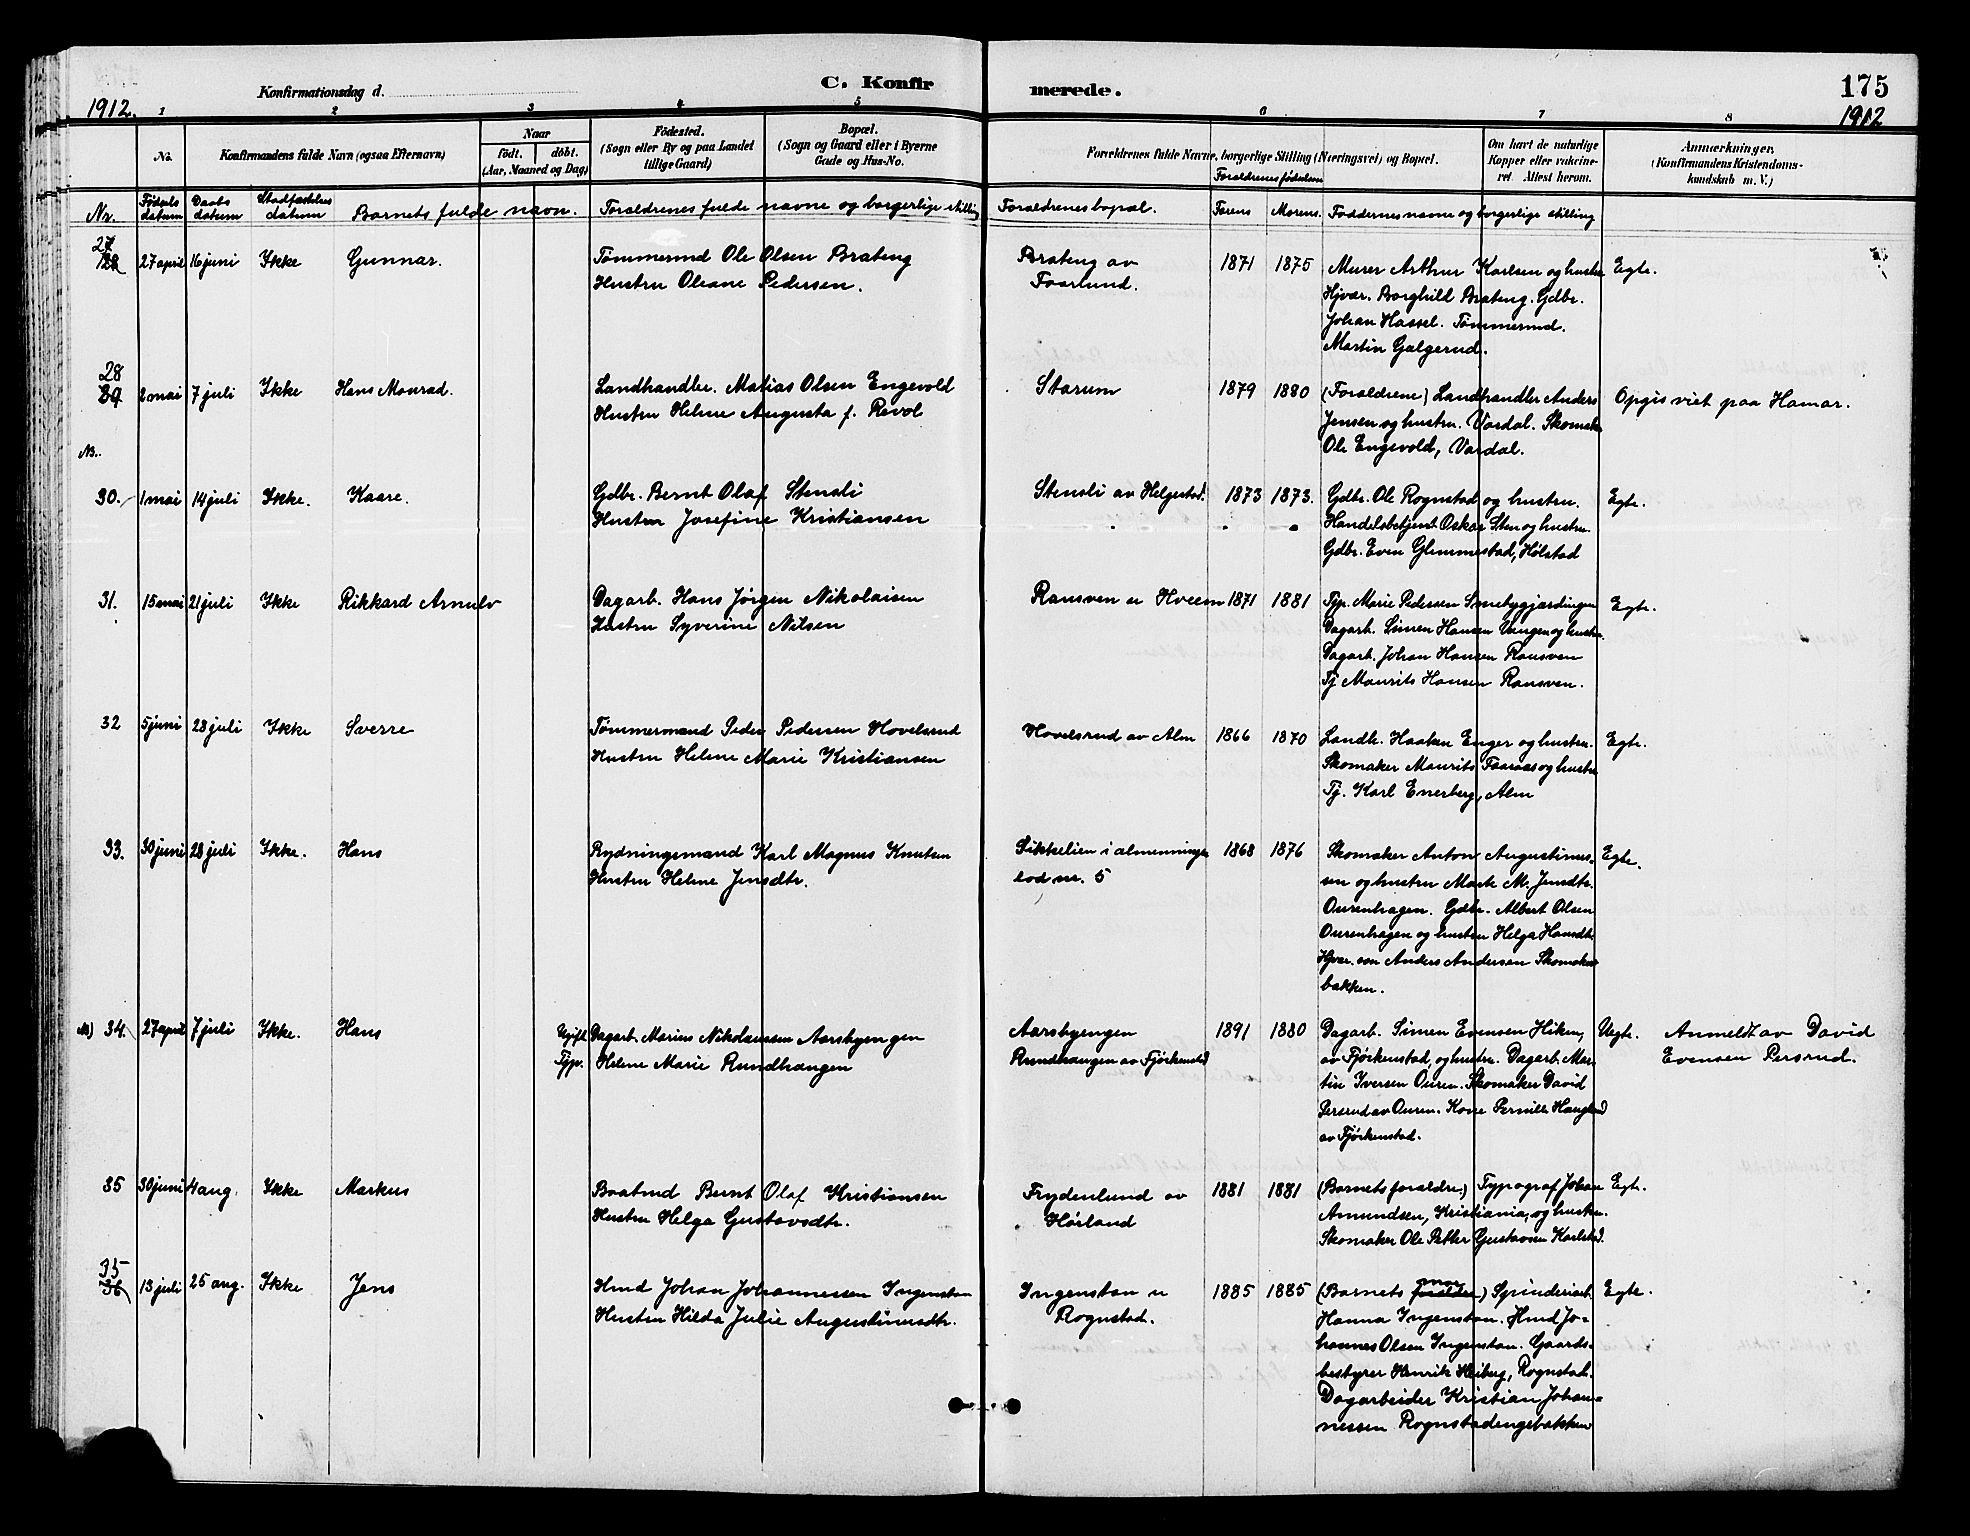 Konfirmationsdag d.
C. Konfir
merede.
175
1912.
1912
1 2 3 4 5 6 7 8
No.
Konfirmandens fulde Navn (ogsaa Efternavn)
Naar
födt. döbt.
(Aar, Maaned og Dag)
Födested.
(Sogn eller By og paa Landet
tillige Gaard)
Bopæl.
(Sogn og Gaard eller i Byerne
Gade og Hus-No.
Forældrenes fulde Navne, borgerlige Stilling (Næringsvei) og Bopæl.
Om havt de naturlige
Kopper eller vaksine-
ret. Attest herom.
Anmærkninger,
(Konfirmandens Kristendoms-
kundskab m. V.)
Forældrenes fødselsaar
Nr.
Fødsels
datum
Daabs
datum
Stadfæstelses
datum
Barnets fulde navn.
Foraldrenes fulde navne og borgerlige stilling
Foraldrenes bopæl.
Farens
Morens.
Faddernes navne og borgerlige stilling
27
27 april 16 juni Ikke Gunnar.
Tømmermd Ole Olsen Brateng
Hustru Oleane Pedersen.
Brateng av
Faarlund.
1871 1875
Murer Arthur Karlsen og hustru
Hjvær. Borghild Brateng. Gdbr.
Johan Hassel. Tømmermd.
Martin Galgerud.
Egte.
28
29 2 mai 7 juli Ikke Hans Monrad.
Landhandler. Matias Olsen Engevold
Hustru Helene Augusta f. Revol
Starum
1879 1880
(Foraldrene) Landhandler Anders
Jensen og hustru. Vardal. Skomaker
Ole Engevold, Vardal.
Opgis viet paa Hamar.
NB..
30. 1 mai 14 juli Ikke. Kaare.
Gdbr. Bernt Olaf Stensli
Hustru Josefine Kristiansen
Stensli av Helgestad.
1873 1873.
Gdbr. Ole Rognstad og hustru.
Handelsbetjent Oskar Sten og hustru
Gdbr. Even Glemmestad, Hølstad
Egte.
31. 15 mai 21 juli Ikke Rikkard Arnulv
Dagarb. Hans Jørgen Nikolaisen
Hustru Syverine Nilsen
Ransven u Hveem
1871 1881
Tjp. Marie Pedersen Smebygjærdingen
Dagarb. Simen Hansen Vangen og hustru.
Dagarb. Johan Hansen Ransven
Tj Maurits Hansen Ransven.
Egte.
32 5 juni 28 juli Ikke Sverre
Tømmermand Peder Pedersen Hovelsrud
Hustru Helene Marie Kristiansen
Hovelsrud av Alm
1866 1870
Landh. Haaken Enger og hustru.
Skomaker Maurits Faaraas og hustru
Tj. Karl Enerberg, Alm
Egte.
33. 30 juni 28 juli Ikke. Hans
Rydningsmand Karl Magnus Knutsen
Hustru Helene Jensdtr.
Sikkelien i almenningen
lod nr. 5
1868 1876
Skomaker Anton Augustinus-
sen og hustru Marte M. Jensdtr.
Ourenhagen. Gdbr. Albert Olsen
Ourenhagen og hustru Helga Hansdtr.
Hjvær. søn Anders Andersen Skomaker
bakken.
Egte.
NB) 34. 27 april 7 juli Ikke. Hans
Ugift Dagarb. Marius Nikolaussen Aarsbyengen
Tjp. Helene Marie Rundhaugen
Aarsbyengen
Rundhaugen av Fjørkenstad
1891 1880
Dagarb. Simen Evensen Hiken,
av Fjørkenstad, og hustru. Dagarb. Mar-
tin Iversen Ouren. Skomaker David
Persrud av Ouren. Kone Pernille Haugerud
av Fjørkenstad.
Uegte.
Anmeldt av David
Evensen Persrud.
35 30 juni 4 aug. Ikke Markus
Baatmd Bernt Olaf Kristiansen
Hustru Helga Gustavsdtr.
Frydenlund av
Hørland
1881 1881
(Barnets foraldre) Typograf Johan
Amundsen, Kristiania, og hustru.
Skomaker Ole Petter Gustavsen Karlstad.
Egte.
35
36 13 juli 25 aug. Ikke Jens
Hmd Johan Johannessen Ingenstan
Hustru Hilda Julie Augustinusdtr.
Ingenstan u
Rognstad.
1885 1885
(Barnets foraldre mor) Spinderiarb.
Hanna Ingenstan. Hmd Jo-
hannes Olsen Ingenstan. Gaards-
bestyrer Henrik Heiberg, Rognstad.
Dagarbeider Kristian Johan-
nessen Rognstadengebakken
Egte.